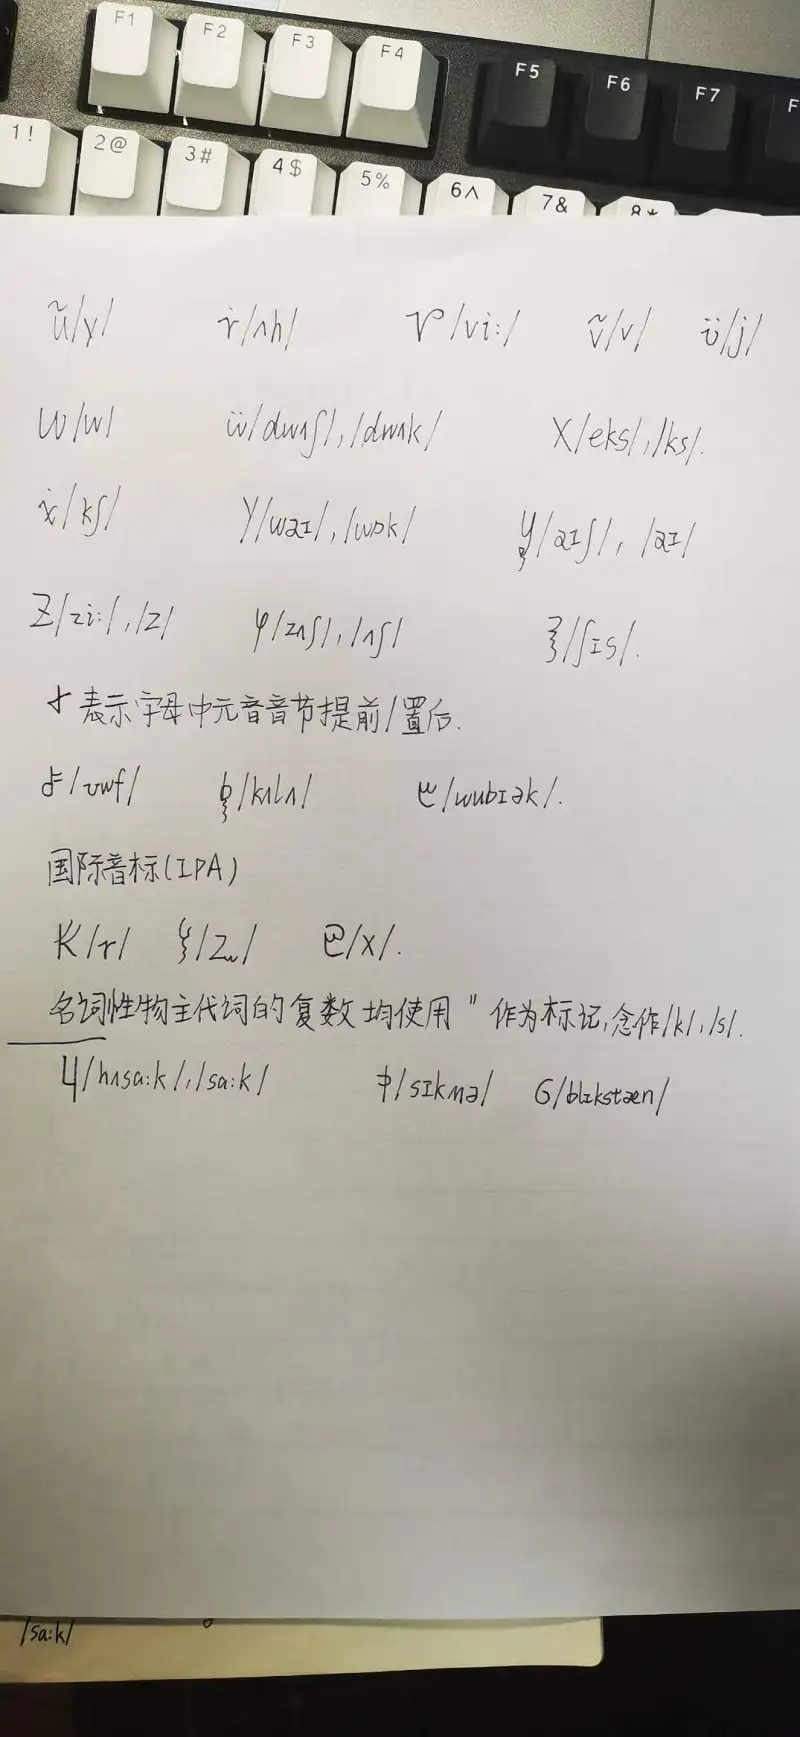 F1 F2 F3 F4 F5 F6 F7
1! 2@ 3# 4$ 5% 6^ 7& 8*
ũ/y/ ṙ/ʌh/ 𝒱/vi:/ ṽ/v/ ü/j/
W/w/ ẅ/dwʌʃ/,/dwʌk/ X/eks/,/ks/.
ẋ/kʃ/ Y/waɪ/,/wɒk/ /aɪʃ/, /aɪ/
Z/zi:/,/z/ φ/zʌʃ/,/ʌʃ/ /ʃɪs/.
表示字母中元音音节提前/置后.
/ʊwf/ /kʌlʌ/ /wubɪək/.
国际音标(IPA)
K/r/ /X/.
名词性物主代词的复数均使用 " 作为标记,念作/k/,/s/.
Ч/hʌsa:k/,/sa:k/ 中/sɪkʌə/ G/blɪkstæn/
/sa:k/